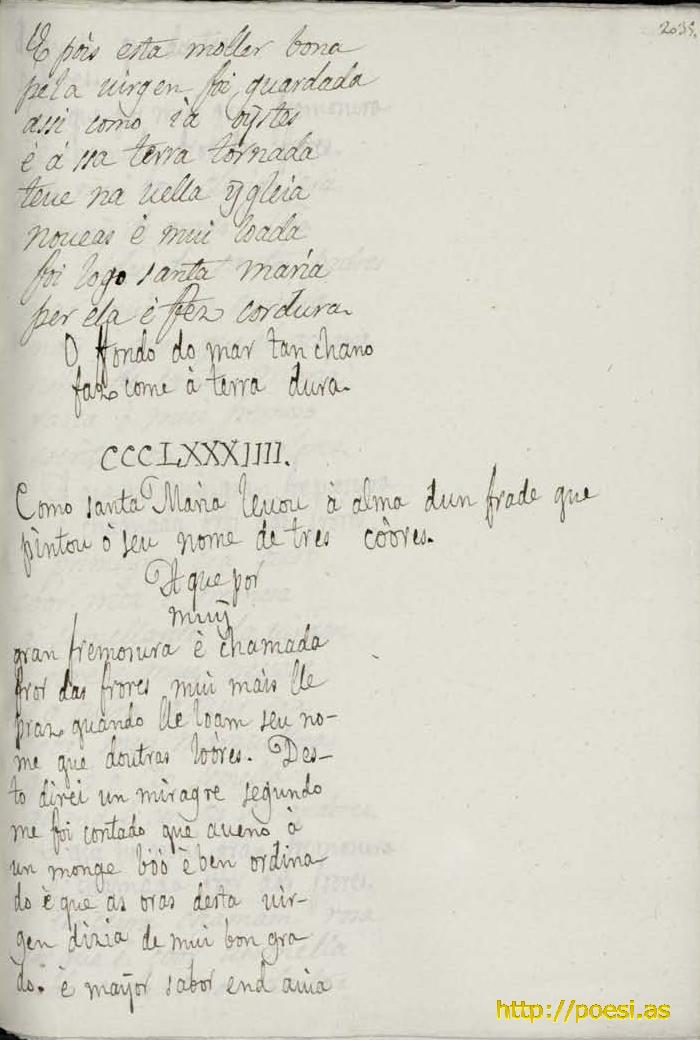 E pòis esta moller bona
pela uirgen foi guardada
assi como ià oÿstes
è á ssa terra tornada
teue na uella ÿgleia
noueas è mui loada
foi logo santa maria
per ela è ffez cordura.
O ffondo do mar tan chano
faz come à terra dura.
CCCLXXXIIII.
Como santa Maria leuou à alma dun frade que
pintou ò seu nome de tres còòres.
A que pór
muÿ
gran fremosura è chamada
fror das frores mui mais lle
praz quando lle loam seu no-
me que doutras lòòres. Des-
to direi un miragre segundo
me foi contado que aueno à
un monge bòò è ben ordina-
do è que as oras desta uir-
gen dizia de mui bon gra
do. è maÿor sabor end auia
http://poesi.as